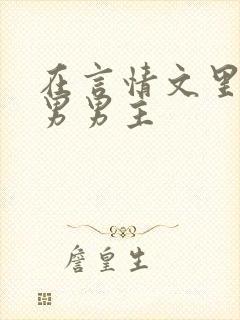 在言情文里
男男主
詹皇生